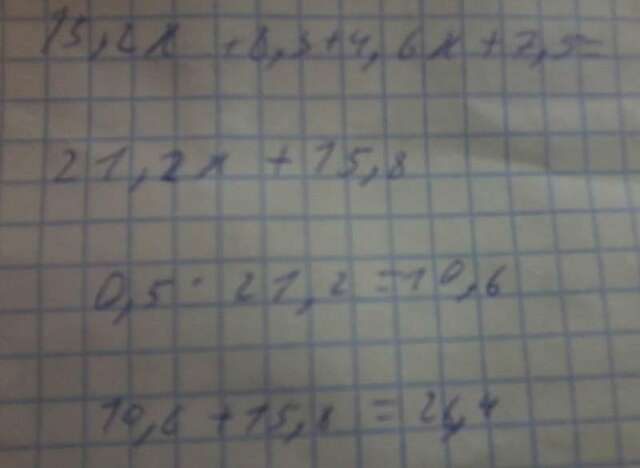 15,2x +8,3+4,6x+7,5=
21,2x + 15,8
0,5 · 21,2 = 10,6
10,6 + 15,8 = 26,4